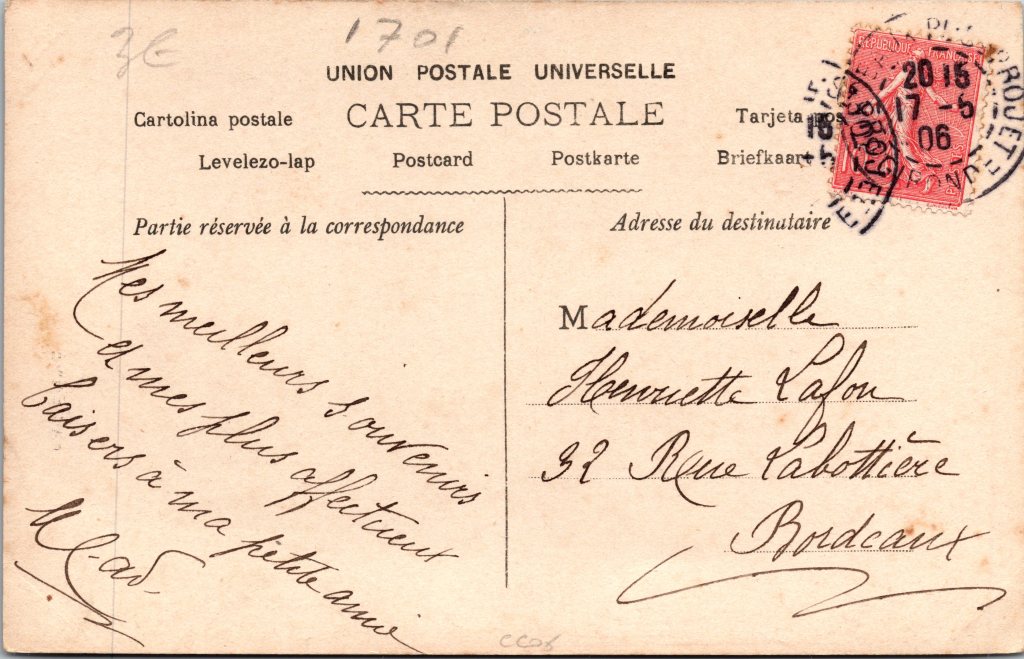 3€ 1701
UNION POSTALE UNIVERSELLE
CARTE POSTALE
Cartolina postale
Tarjeta pos
Levelezo-lap Postcard Postkarte Briefkaart
RÉPUBLIQUE FRANÇAISE
20 15
17 - 5
06
GIRONDE
Partie réservée à la correspondance
Adresse du destinataire
Mes meilleurs souvenirs
et mes plus affectueux
baisers à ma petite amie
Mademoiselle
Henriette Lafon
32 Rue Labottière
Bordeaux